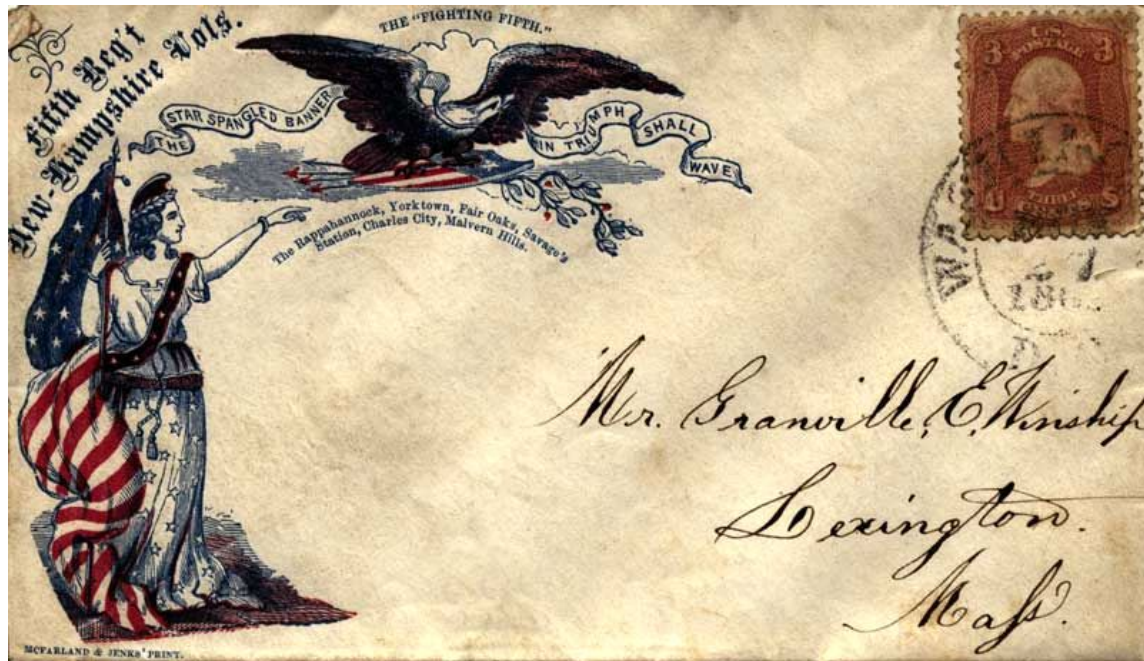 Fifth Reg't
New-Hampshire Vols.
THE "FIGHTING FIFTH."
THE STAR SPANGLED BANNER IN TRIUMPH SHALL WAVE
The Rappahannock, Yorktown, Fair Oaks, Savage's
Station, Charles City, Malvern Hills.
3 U.S. 3
POSTAGE
U CENTS S
Mr. Granville, E. Winship
Lexington.
Mass.
MCFARLAND & JENKS' PRINT.